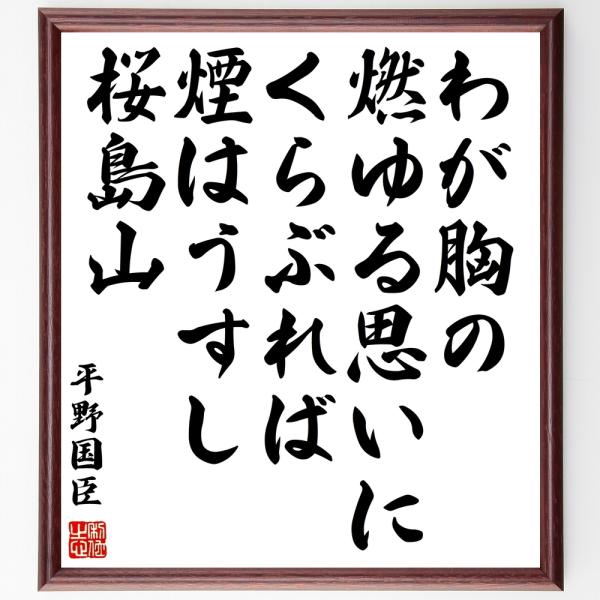 わが胸の
燃ゆる思いに
くらぶれば
煙はうすし
桜島山
平野国臣